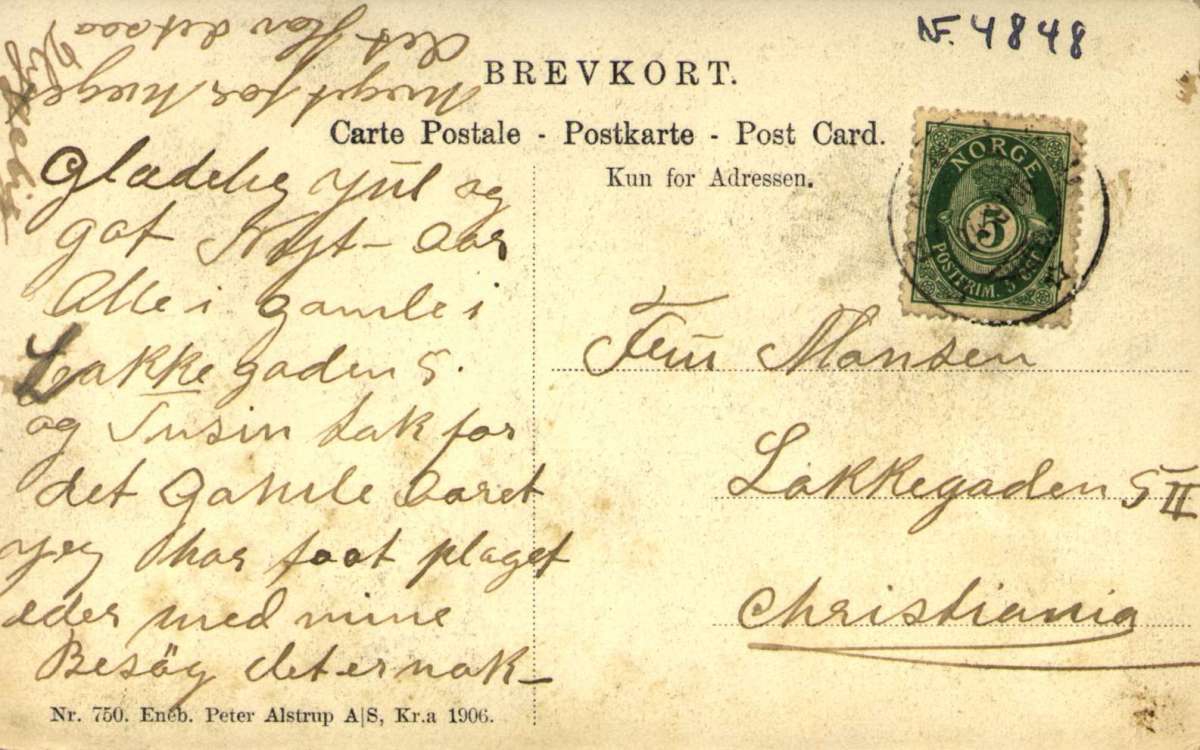 NF. 4848
BREVKORT.
Carte Postale - Postkarte - Post Card.
Kun for Adressen.
NORGE
5
POSTFRIM. 5 ØRE
Glædelig Jul og
got Nyt-Aar
Alle i gamle i
Lakkegaden 5.
og Tusin tak for
det Gamle Aaret
jeg har faat plaget
eder med mine
Besøg det er nok-
meget for meget
det
Fru Monsen
Lakkegaden 5 II
Christiania
Nr. 750. Eneb. Peter Alstrup A|S, Kr.a 1906.